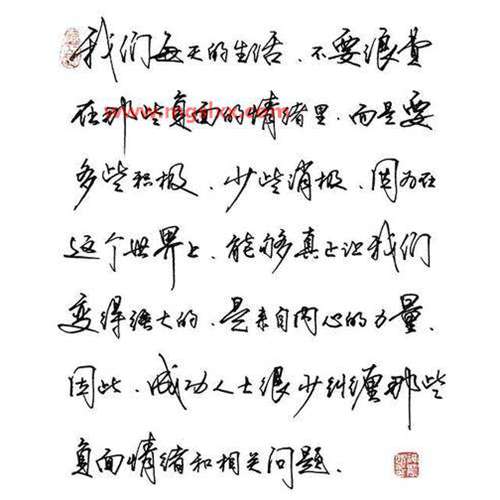 我们每天的生活、不要浪费
在那些负面的情绪里、而是要
多些积极、少些消极、因为在
这个世界上、能够真正让我们
变得强大的、是来自内心的力量、
因此、成功人士很少纠缠那些
负面情绪和相关问题、